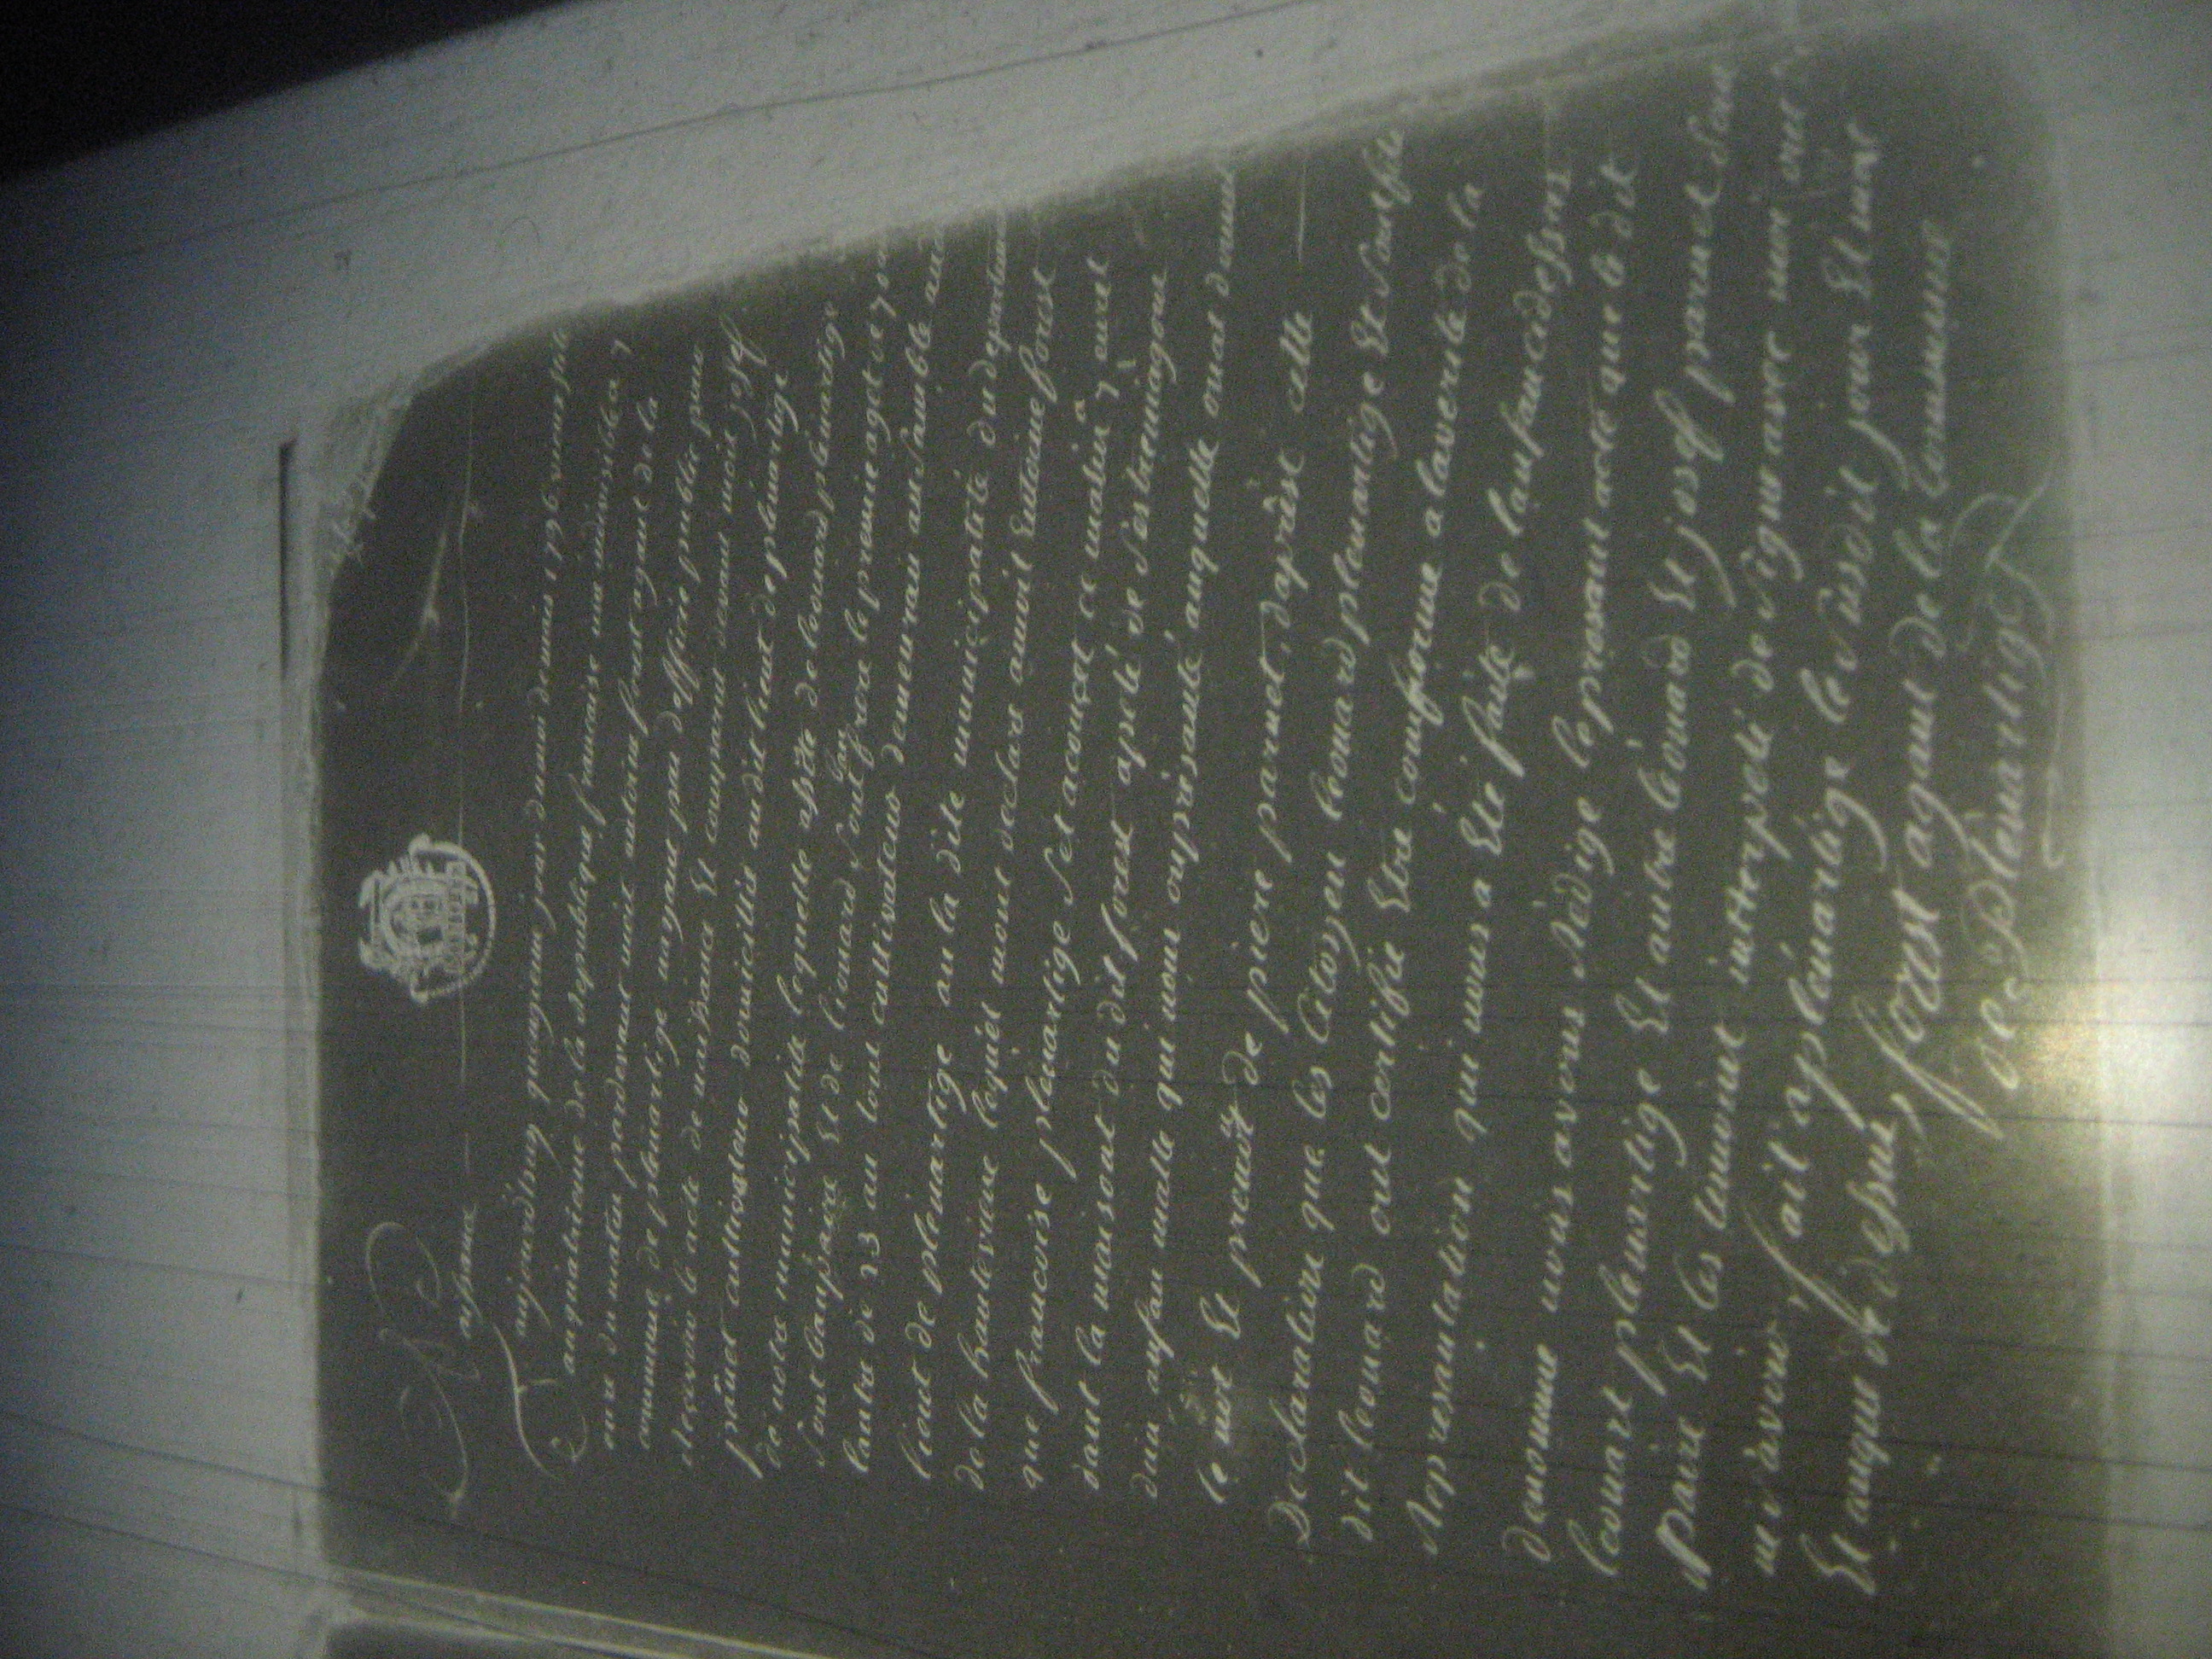 Naissance
aujourdhuy quengieme jour du moi de mars 1796 vieux stile
anquatrieme de la Republique francaise une indivisible a 7
eure du matin pardevant moit antoine forest agant de la
commune de plénartige nayant pas dofficie public pour
reçevoir le acte de naissance Et comparut devant moit josef
panet cultivateur domicillie audit lieut de plénartige
de notre municipalite lequelle assiste de leonard plénartige
sont baupaire Et de lionard sont bau frere le premie aget de 70 an
lautre de 23 an tout cultivateur demeurau ansamble audi
lieut de plénartige au la dite municipatité du departement
de la hauteviene lequel mont declare amoit Entoine forest
que francoise plénartige set acouçet ce matin a 7 eurel
dant la maisont du dit forest apelé de
dun anfan malle qui nous onprésanté auquelle onat donnet
le not Et prenot de piere parnet, daprêst cette
Declaration que les Citoyen leonard plenartige Et sont fils
dit leonard ont certifie Etre comforme a laverite de la
Represantation qui nous a Eté faite de lanfancidessus
denomme nous avons Rédige le presant acte que le dit
leonart plenartige Et autre léonard Et josef parnet sont
paire Et les temoint intterpelé de signe avec moi ont
mi savoir, fait a plénartige le susdit jour Et moi
Et anque de dessus, forest agant de la Commune
de Plénartige